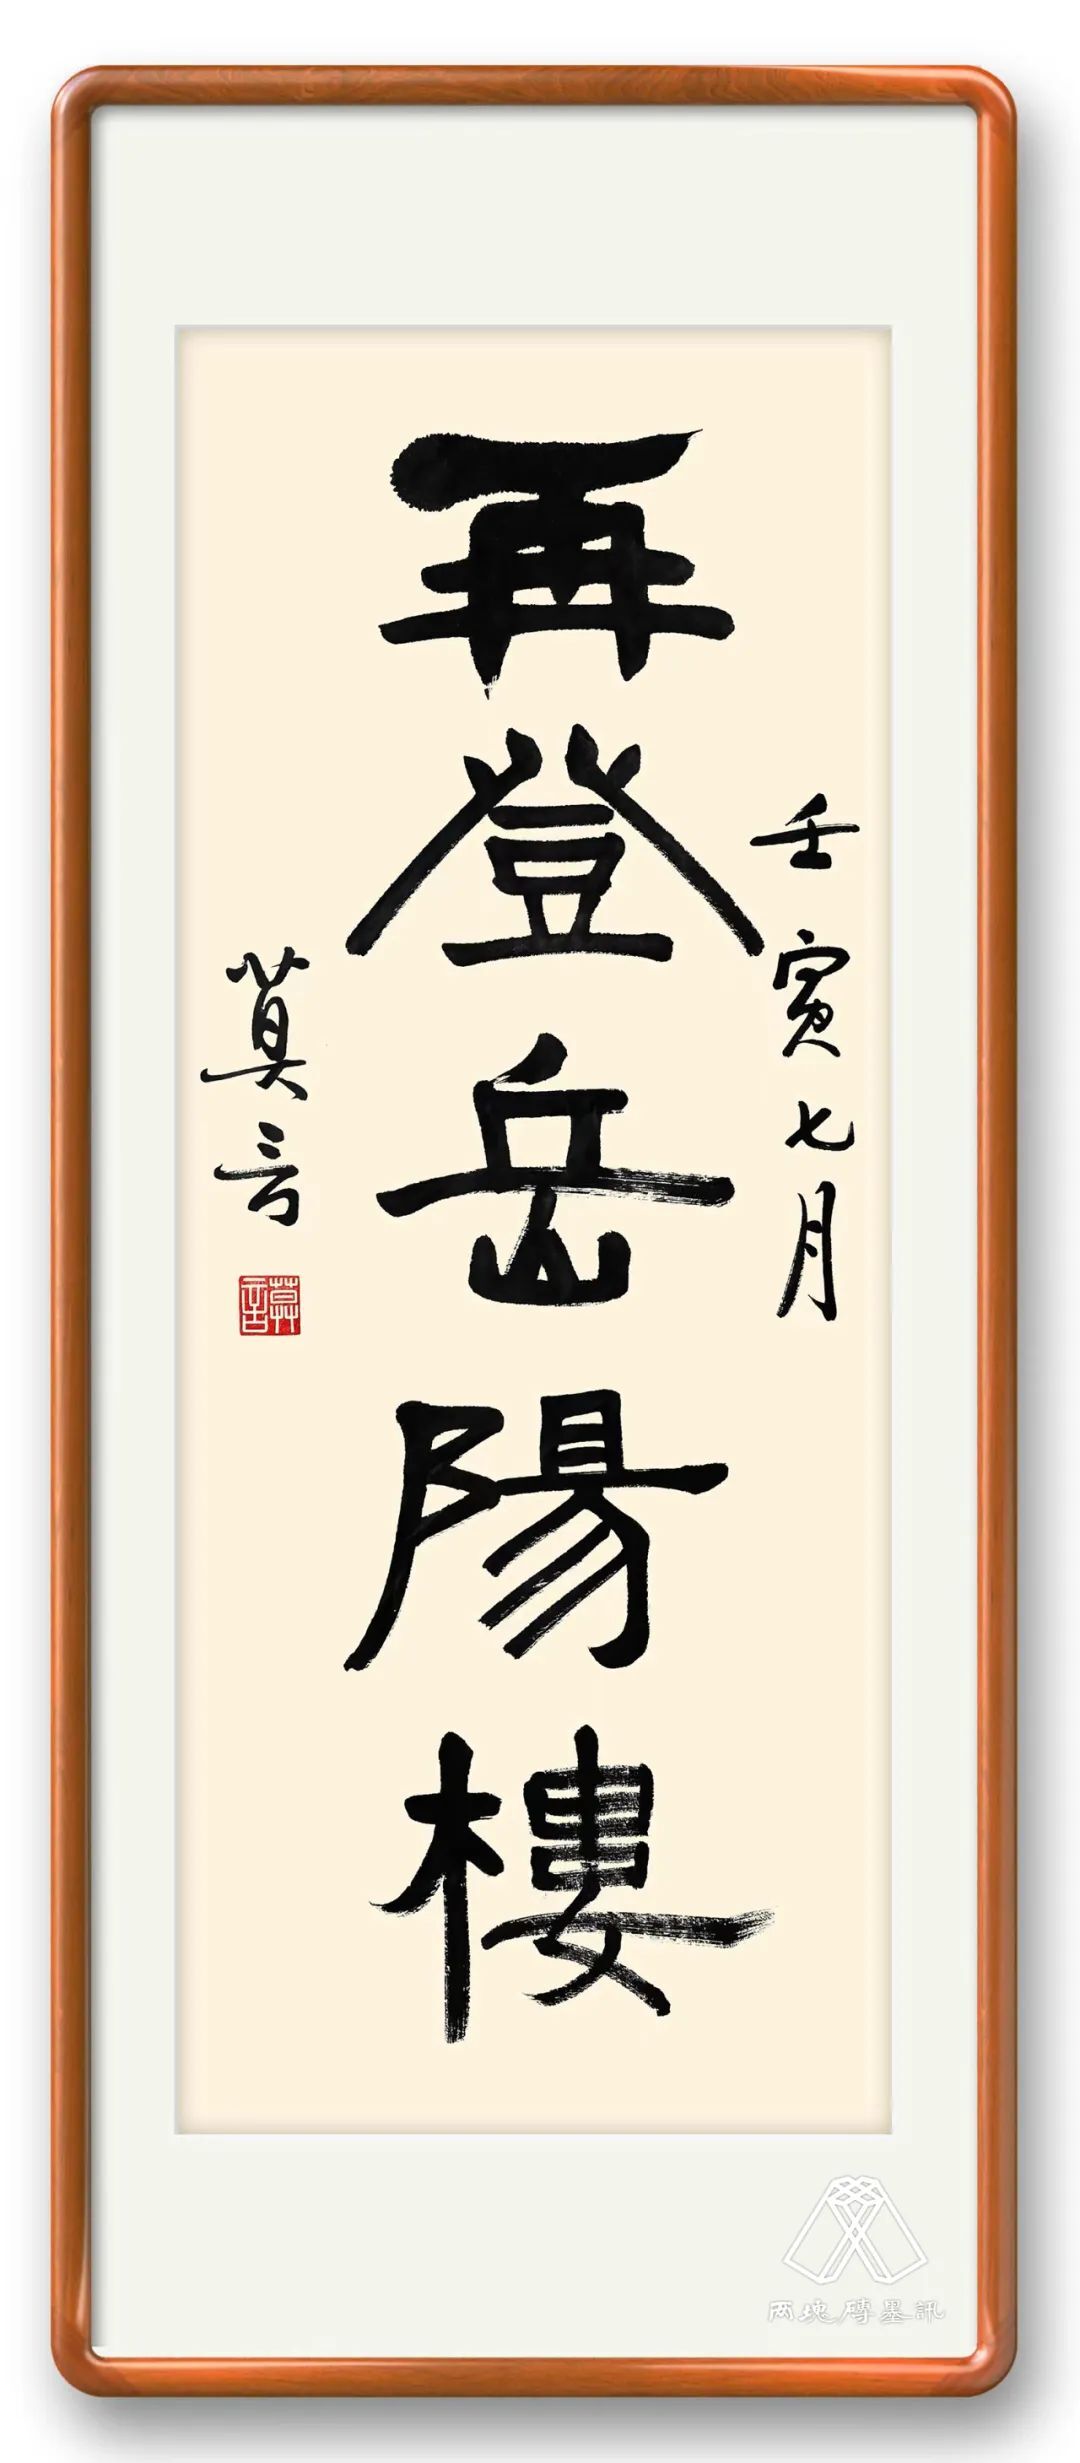 壬寅七月
再登岳陽樓
莫言
莫言
两塊磚墨訊